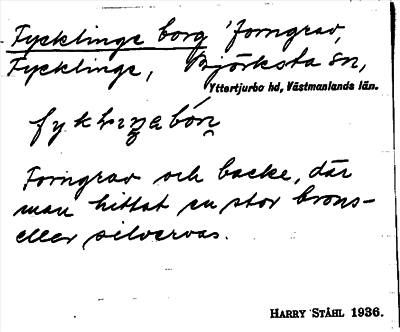 Fycklinge borg 'forngrav,
Fycklinge, Björksta sn,
Yttertjurbo hd, Västmanlands län.
Forngrav och backe, där
man hittat en stor brons-
eller silvervas.
HARRY STÅHL 1936.